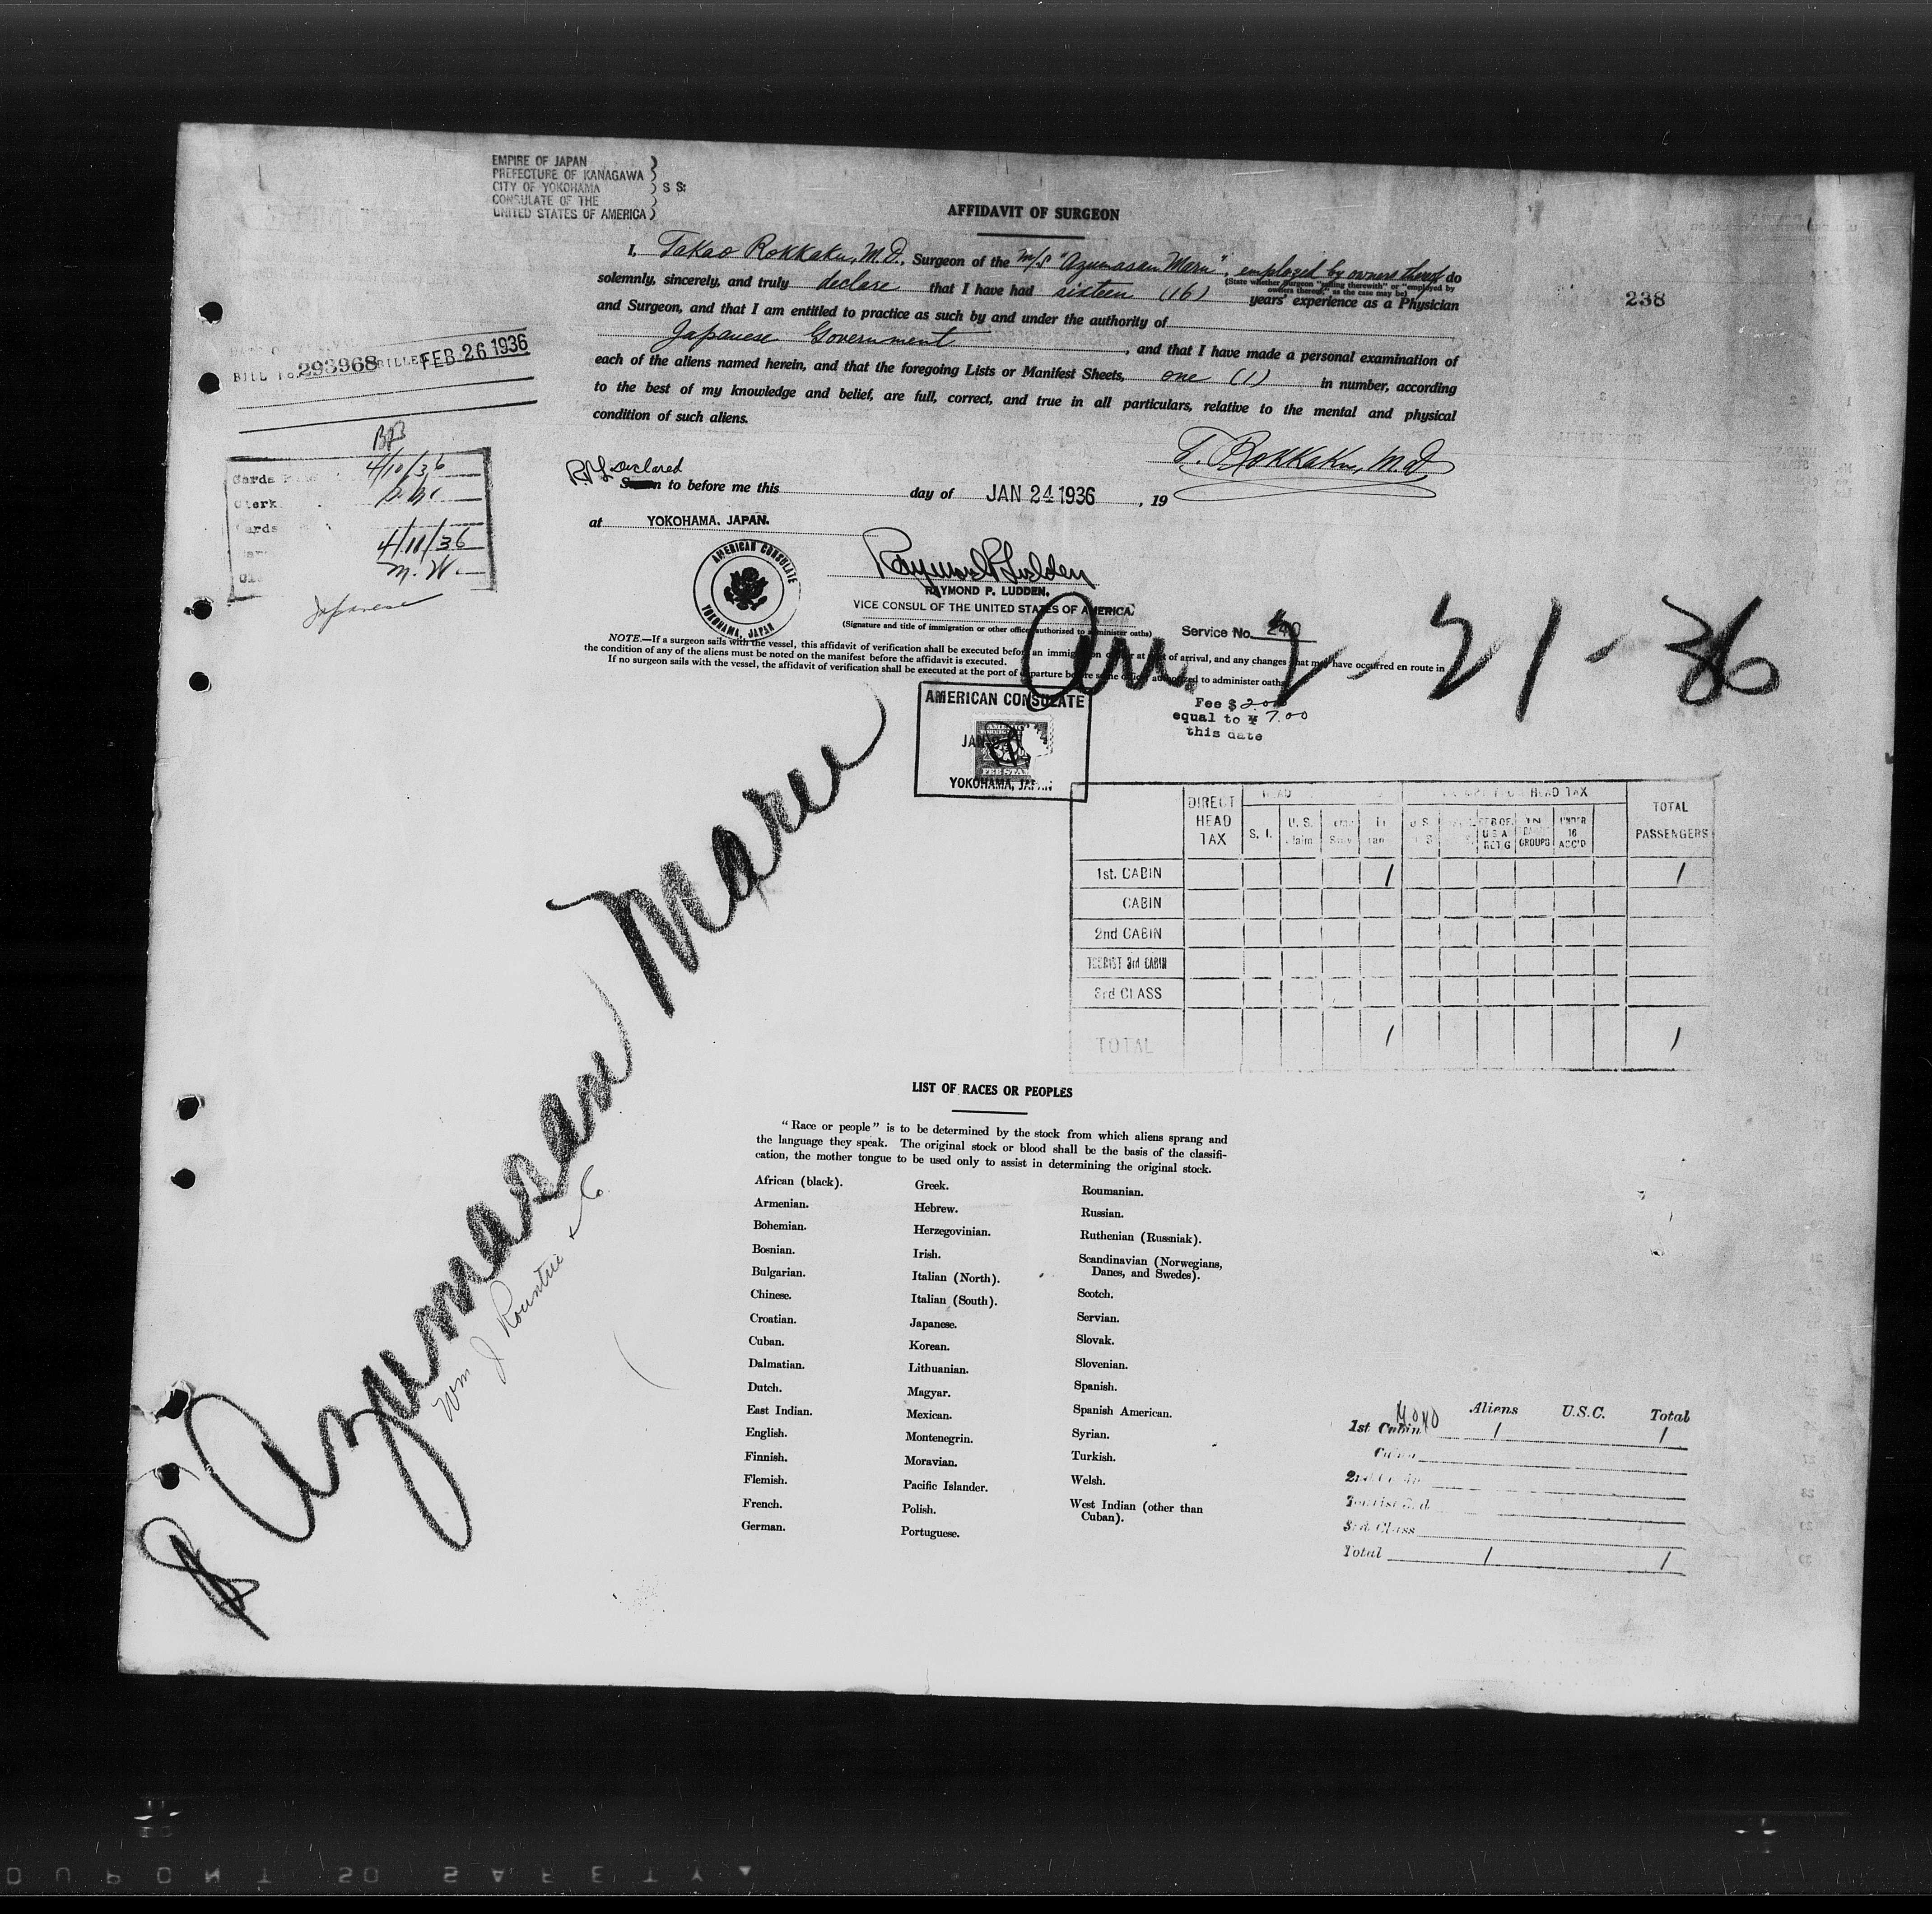 EMPIRE OF JAPAN
PREFECTURE OF KANAGAWA
CITY OF YOKOHAMA
CONSULATE OF THE
UNITED STATES OF AMERICA
S S:
AFFIDAVIT OF SURGEON
I, Takao Rokkaku, M.D., Surgeon of the M/S "Azumasan Maru", employed by owners thereof do
(State whether Surgeon "sailing therewith" or "employed by
owners thereof," as the case may be)
solemnly, sincerely, and truly declare that I have had sixteen (16) years' experience as a Physician
and Surgeon, and that I am entitled to practice as such by and under the authority of
Japanese Government, and that I have made a personal examination of
each of the aliens named herein, and that the foregoing Lists or Manifest Sheets, one (1) in number, according
to the best of my knowledge and belief, are full, correct, and true in all particulars, relative to the mental and physical
condition of such aliens.
238
BILL 293968 BILLED FEB 26 1936
4/10/36
Clerk
Cards
4/10/36
M. W.
Japanese
T. Rokkaku, M.D
Declared
Sworn to before me this day of JAN 24 1936, 19
at YOKOHAMA, JAPAN.
AMERICAN CONSULATE
YOKOHAMA, JAPAN
Raymond P. Ludden
RAYMOND P. LUDDEN,
VICE CONSUL OF THE UNITED STATES OF AMERICA.
(Signature and title of immigration or other officer authorized to administer oaths)
Service No. 240
Arr. 2-21-36
NOTE.—If a surgeon sails with the vessel, this affidavit of verification shall be executed before an immigration officer at port of arrival, and any changes that may have occurred en route in
the condition of any of the aliens must be noted on the manifest before the affidavit is executed.
If no surgeon sails with the vessel, the affidavit of verification shall be executed at the port of departure before some officer authorized to administer oaths.
Fee $ 2.00
equal to ¥ 7.00
this date
AMERICAN CONSULATE
JAN
FEE STAMP
YOKOHAMA, JAPAN
DIRECT HEAD TAX
S. I.
U. S. Claim
HEAD TAX
U S A
RET'G
IN GROUPS
UNDER 16 ACC'D
TOTAL PASSENGERS
1st. CABIN 1 1
CABIN
2nd CABIN
TOURIST 3rd CABIN
3rd CLASS
TOTAL 1 1
Azumasan Maru
Wm J Rountree & Co
LIST OF RACES OR PEOPLES
"Race or people" is to be determined by the stock from which aliens sprang and
the language they speak. The original stock or blood shall be the basis of the classifi-
cation, the mother tongue to be used only to assist in determining the original stock.
African (black).
Armenian.
Bohemian.
Bosnian.
Bulgarian.
Chinese.
Croatian.
Cuban.
Dalmatian.
Dutch.
East Indian.
English.
Finnish.
Flemish.
French.
German.
Greek.
Hebrew.
Herzegovinian.
Irish.
Italian (North).
Italian (South).
Japanese.
Korean.
Lithuanian.
Magyar.
Mexican.
Montenegrin.
Moravian.
Pacific Islander.
Polish.
Portuguese.
Roumanian.
Russian.
Ruthenian (Russniak).
Scandinavian (Norwegians,
Danes, and Swedes).
Scotch.
Servian.
Slovak.
Slovenian.
Spanish.
Spanish American.
Syrian.
Turkish.
Welsh.
West Indian (other than
Cuban).
Aliens U.S.C. Total
1st Cabin 1 1
Cabin
2nd Cabin
Tourist 3rd
3rd Class
Total 1 1
DUPONT 50 SAFETY